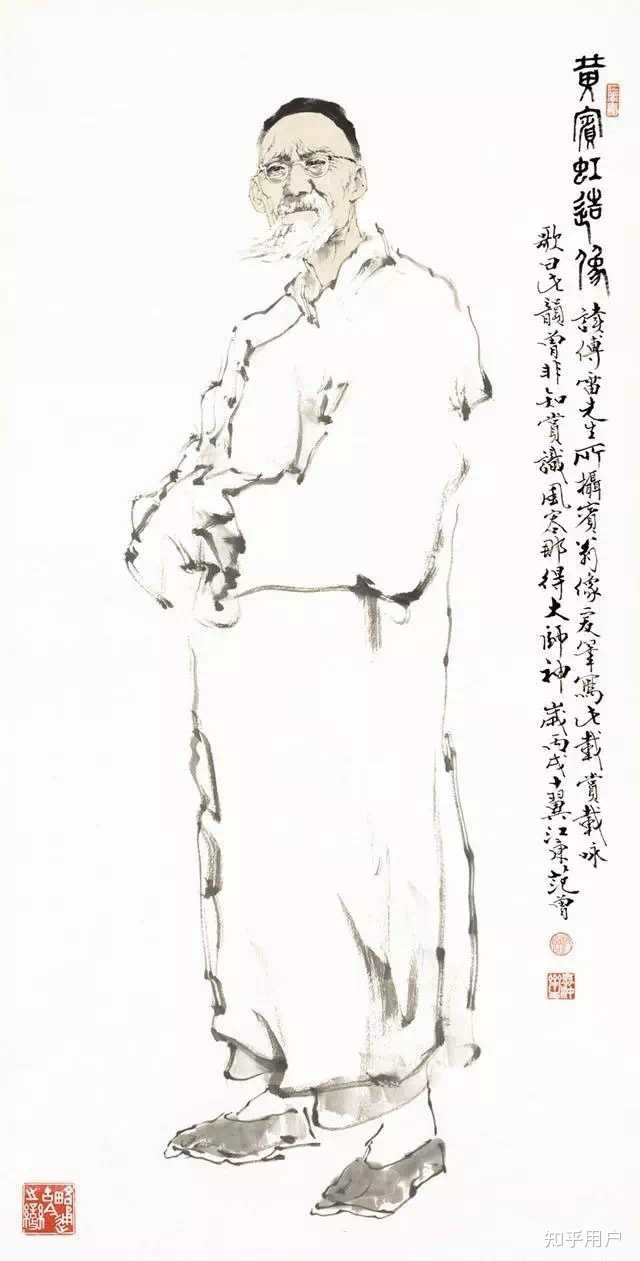 黄賓虹造像
讀傅雷先生所攝賓翁像爰筆寫此載賞載咏
歌曰此韻曾非知賞識風塞那得大師神歲丙戌十翼江東范曾
知乎用户